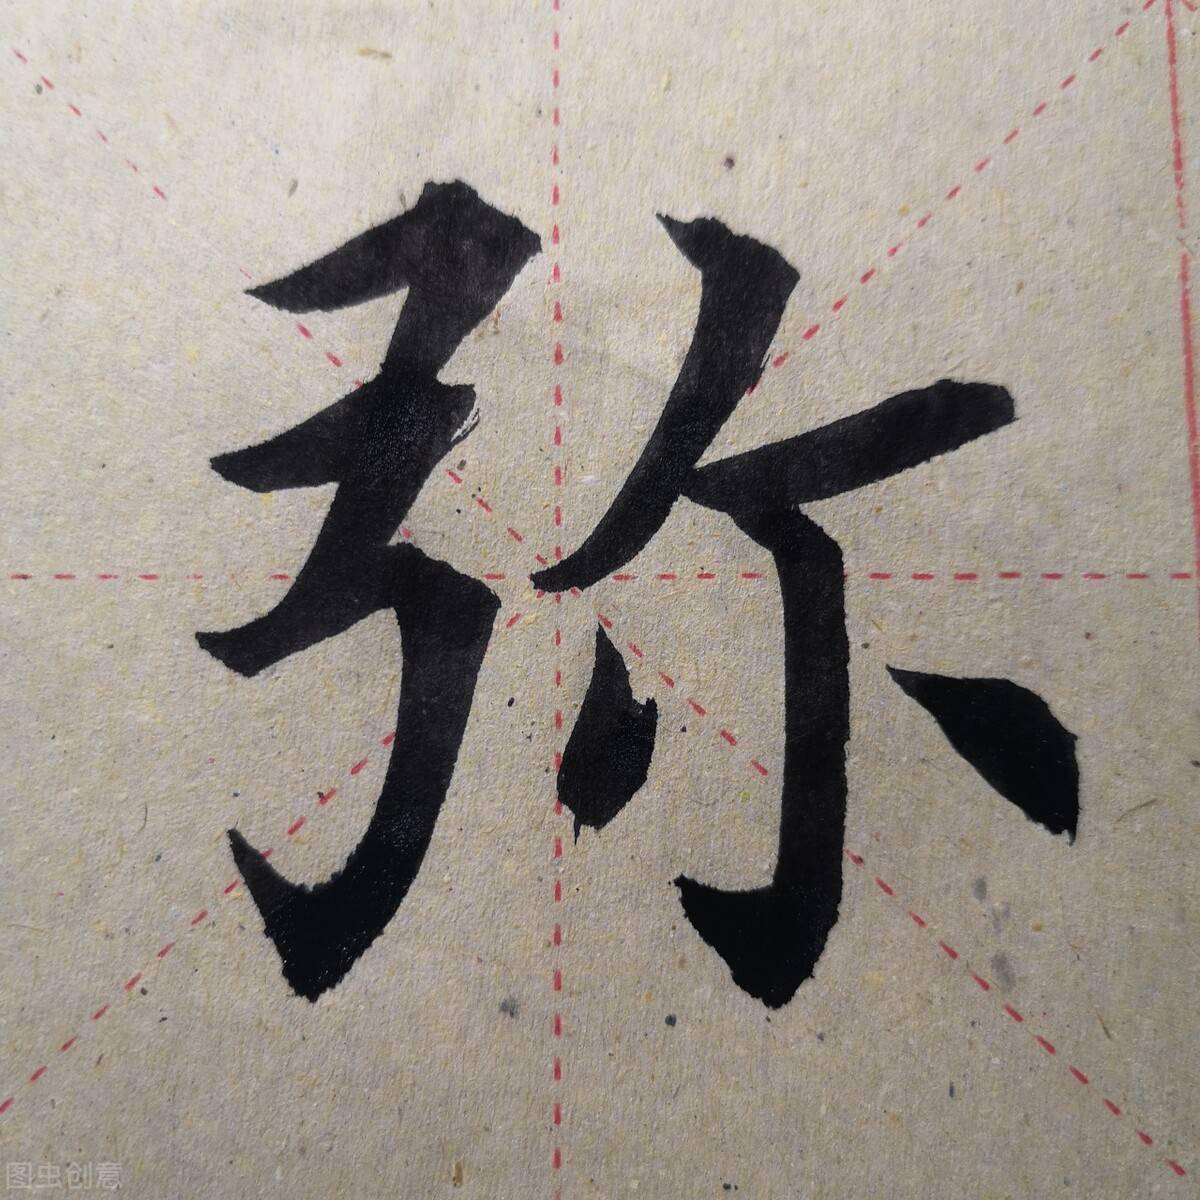 弥
图虫创意